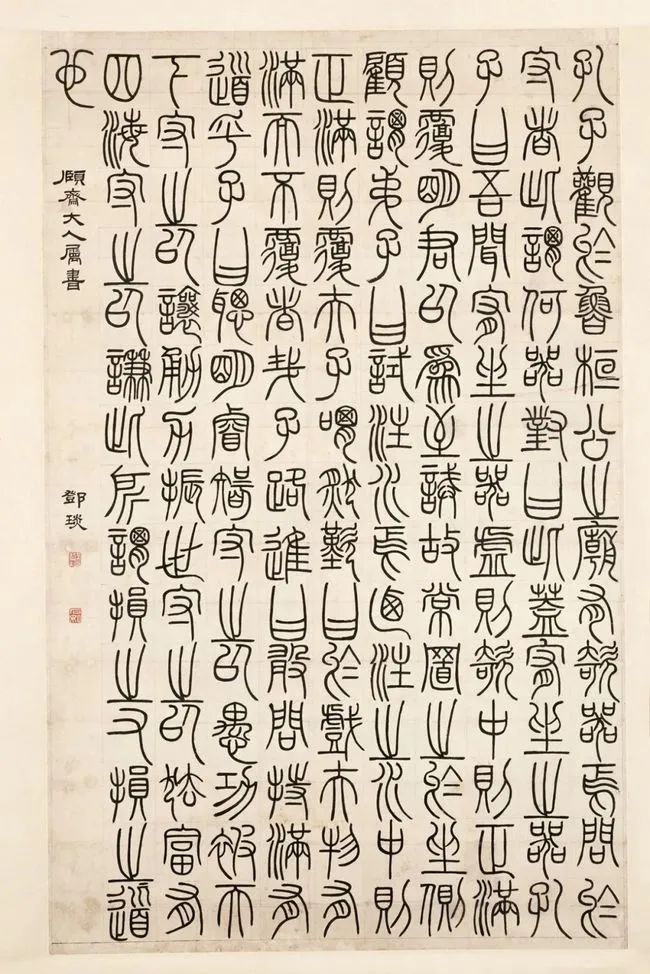 孔子觀於魯桓公之廟有欹器焉問於
守者此謂何器對曰此蓋宥坐之器孔
子曰吾聞宥坐之器虛則欹中則正滿
則覆明君以爲至誡故常置之於坐側
顧謂弟子曰試注水焉乃注之水中則
正滿則覆夫子喟然歎曰於戲夫物有
滿而不覆者哉子路進曰敢問持滿有
道乎子曰聰明睿智守之以愚功被天
下守之以讓勇力振世守之以怯富有
四海守之以謙此所謂損之又損之道
也
頤齋大人屬書
鄧琰